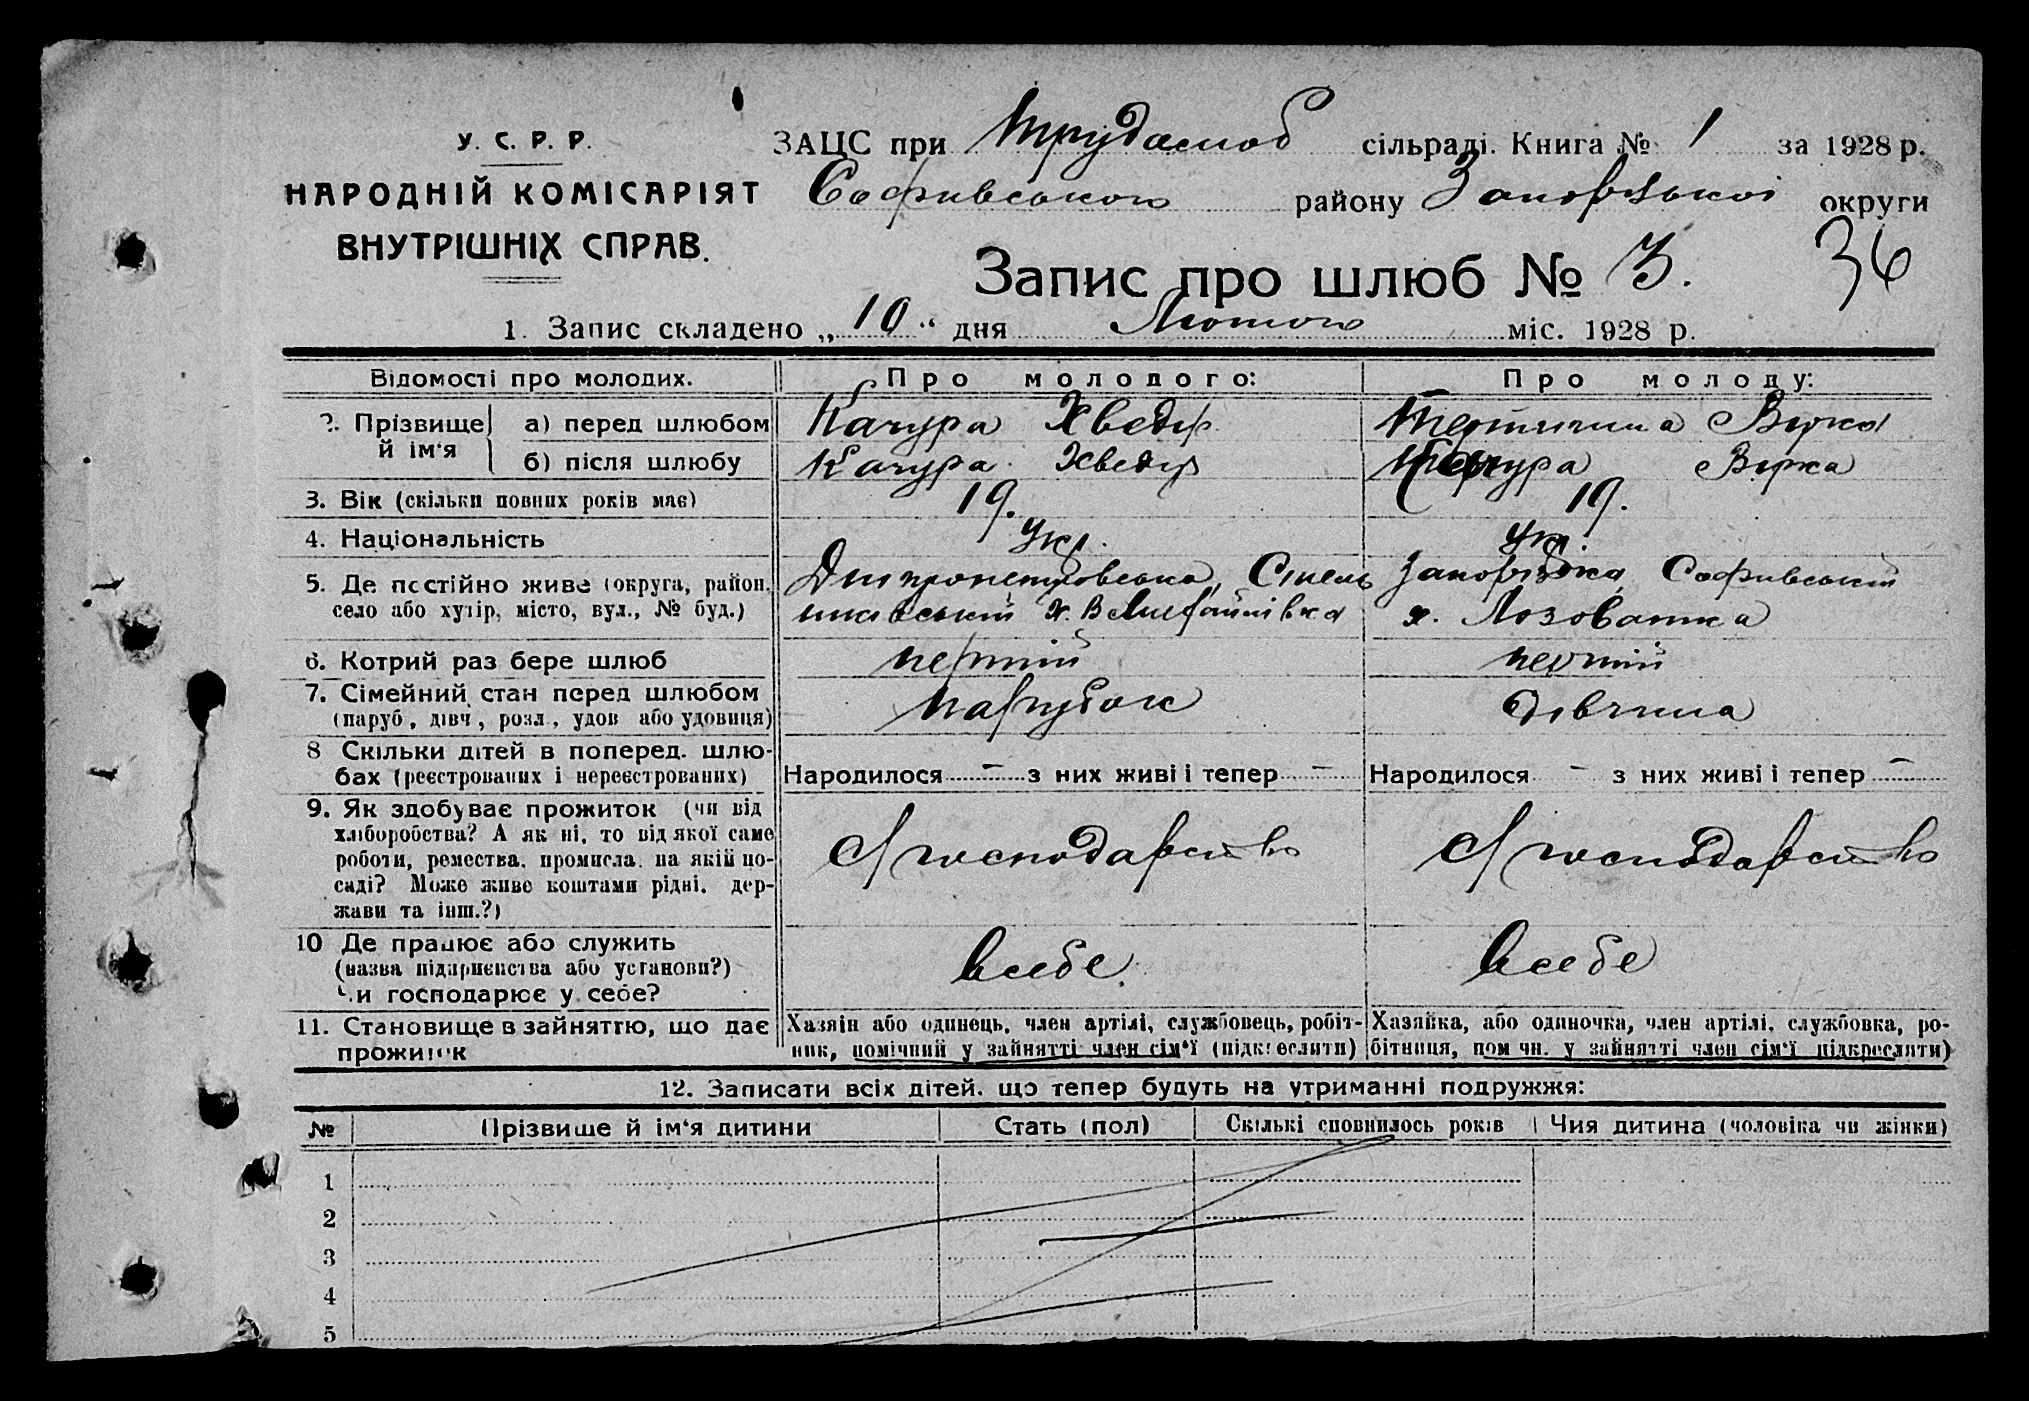 У. С. Р. Р.
НАРОДНІЙ КОМІСАРІЯТ
ВНУТРІШНІХ СПРАВ.
ЗАЦС при Трудолюб сільраді. Книга № 1 за 1928 р.
Софивською району Запорізької округи
Запис про шлюб № 3. 36
1. Запис складено „ 10 “ дня Лютого міс. 1928 р.
Відомості про молодих. Про молодого: Про молоду:
2. Прізвище й ім'я а) перед шлюбом Качура Хведір Вірка
б) після шлюбу Качура Хведір Качура Вірка
3. Вік (скільки повних років має) 19. 19.
4. Національність Укр. Укр.
5. Де постійно живе (округа, район, Дніпропетровська, Запорізька, Софивський
село або хутір, місто, вул., № буд.) х. х. Лозоватка
6. Котрий раз бере шлюб первий первий
7. Сімейний стан перед шлюбом парубок дівчина
(паруб., дівч., розл., удов або удовиця)
8 Скільки дітей в поперед. шлю-
бах (реєстрованих і нереєстрованих) Народилося — з них живі і тепер — Народилося — з них живі і тепер —
9. Як здобуває прожиток (чи від
хліборобства? А як ні, то від якої саме
роботи, ремества, промисла, на якій по-
саді? Може живе коштами рідні, дер-
жави та інш.?)
С/господарство С/господарство
10 Де працює або служить
(назва підприємства або установи?)
Чи господарює у себе?
всебе всебе
11. Становище в зайняттю, що дає
прожиток
Хазяїн або одинець, член артілі, службовець, робіт-
ник, помічний у зайнятті член сім'ї (підкреслити)
Хазяйка, або одиночка, член артілі, службовка, ро-
бітниця, помічн. у зайнятті член сім'ї підкреслити)
12. Записати всіх дітей, що тепер будуть на утриманні подружжя:
№ Прізвище й ім'я дитини Стать (пол) Скількі сповнилось років Чия дитина (чоловіка чи жінки)
1
2
3
4
5